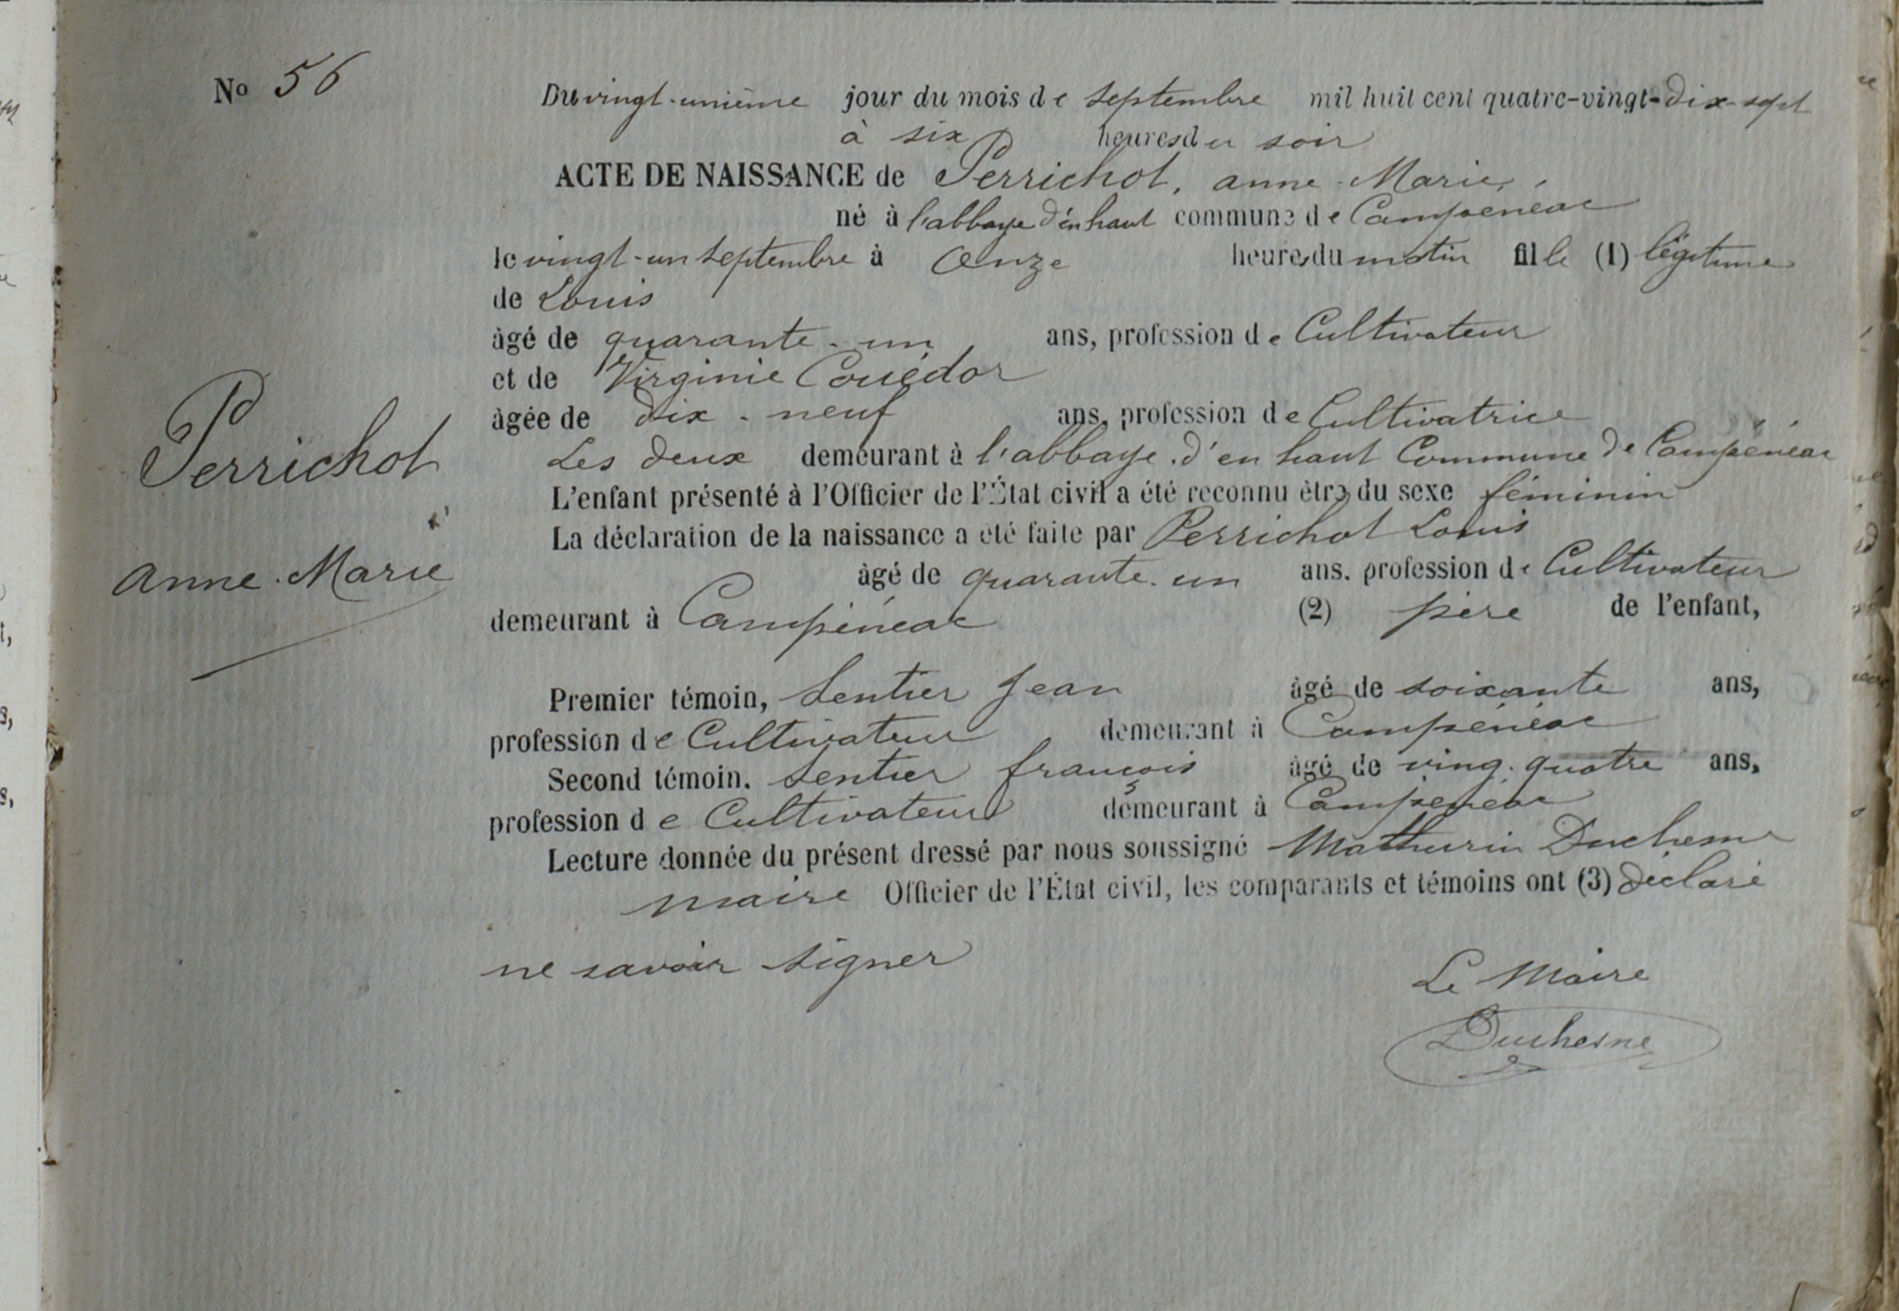 No 56
Du vingt-unième jour du mois de septembre mil huit cent quatre-vingt-dix-sept
à six heures du soir
ACTE DE NAISSANCE de Perrichot, anne-Marie,
né à l'abbaye d'en haut commune de Campénéac
le vingt-un septembre à Onze heures du matin fille (1) légitime
de Louis
âgé de quarante-un ans, profession de Cultivateur
et de Virginie Couédor
âgée de dix-neuf ans, profession de Cultivatrice
Les deux demeurant à l'abbaye d'en haut Commune de Campénéac
L'enfant présenté à l'Officier de l'État civil a été reconnu être du sexe féminin
La déclaration de la naissance a été faite par Perrichot Louis
âgé de quarante-un ans. profession de Cultivateur
demeurant à Campénéac (2) père de l'enfant,
Perrichot
anne-Marie
Premier témoin, Sentier Jean âgé de soixante ans,
profession de Cultivateur demeurant à Campénéac
Second témoin. Sentier françois âgé de ving-quatre ans,
profession de Cultivateur demeurant à Campénéac
Lecture donnée du présent dressé par nous soussigné Mathurin Duchesne
maire Officier de l'État civil, les comparants et témoins ont (3) déclaré
ne savoir signer
Le Maire
Duchesne